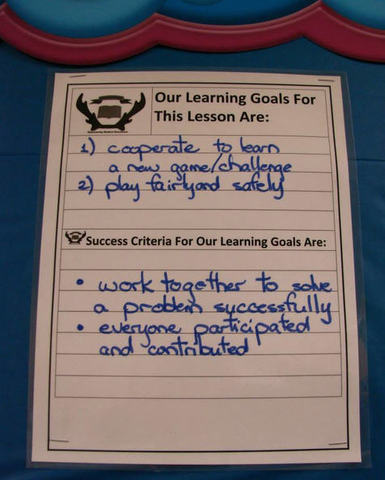 Our Learning Goals For
This Lesson Are:
1) cooperate to learn
a new game/challenge
2) play fairly and safely
Success Criteria For Our Learning Goals Are:
• work together to solve
a problem successfully
• everyone participated
and contributed